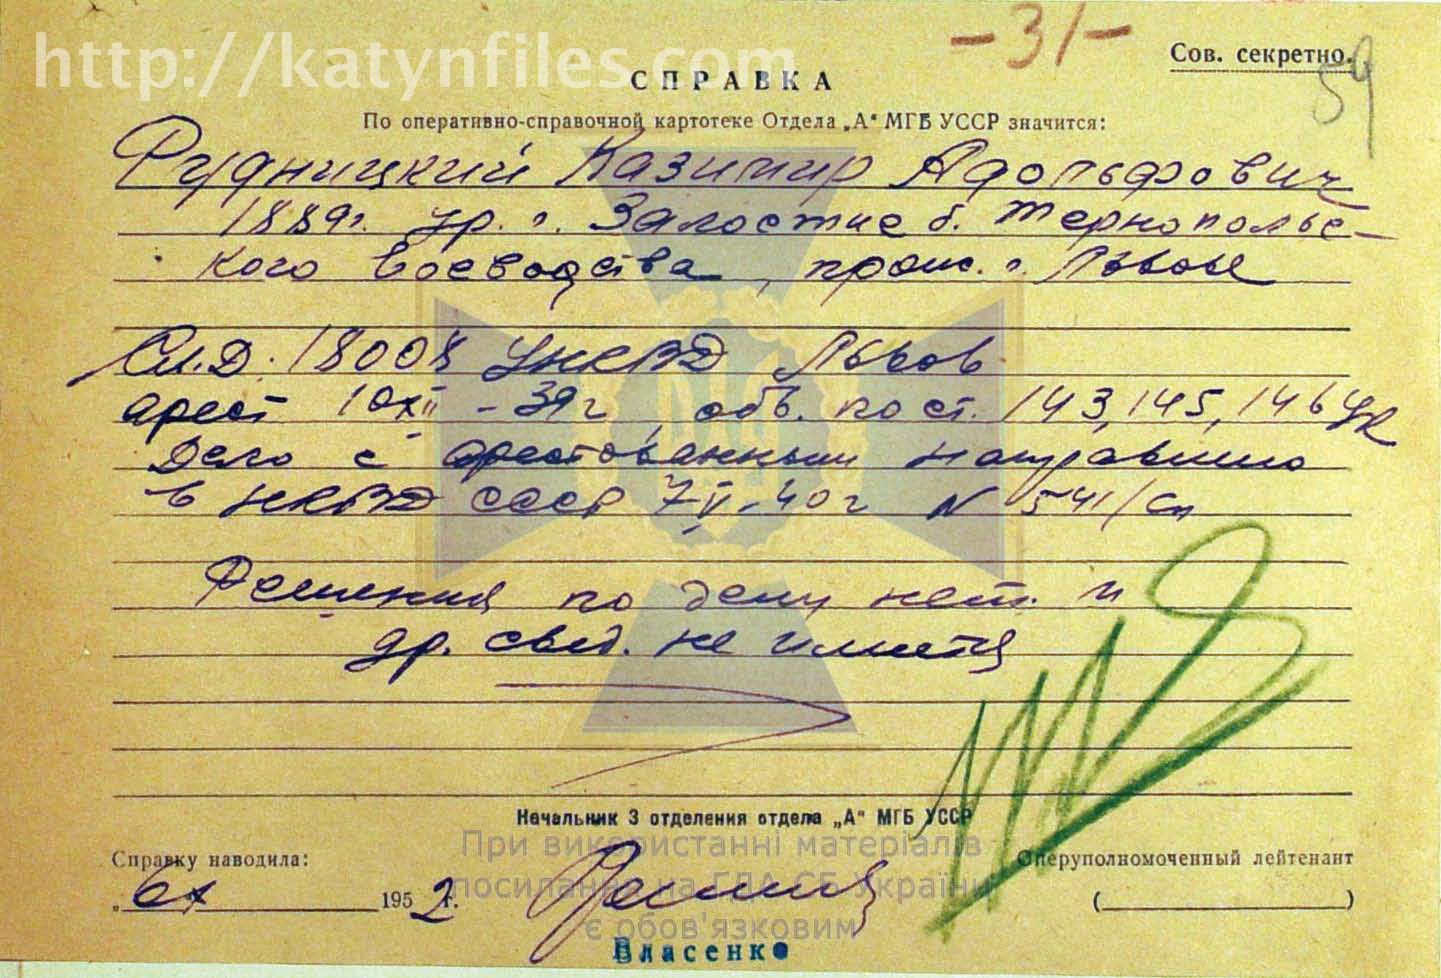 http://katynfiles.com
-31-
Сов. секретно.
59
СПРАВКА
По оперативно-справочной картотеке Отдела „А“ МГБ УССР значится:
Рудницкий Казимир Адольфович
1889г. ур. с. Залостие б. Тернопольс-
кого воеводства, прож. г. Львов
Сл.д. 18008 УНКВД Львов
арест 10 XII-39г., обв. по ст. 143, 145, 146 УК
Дело с арестованным направлено
в НКВД СССР 7 V-40г N 541/сп
Решения по делу нет и
др. свед. не имеется
Начальник 3 отделения отдела „А“ МГБ УССР
Справку наводила:
Оперуполномоченный лейтенант
„ 6 х 1952 г.
( )
Власенко
При використанні матеріалів
посилання на ГДА СБ України
є обов'язковим